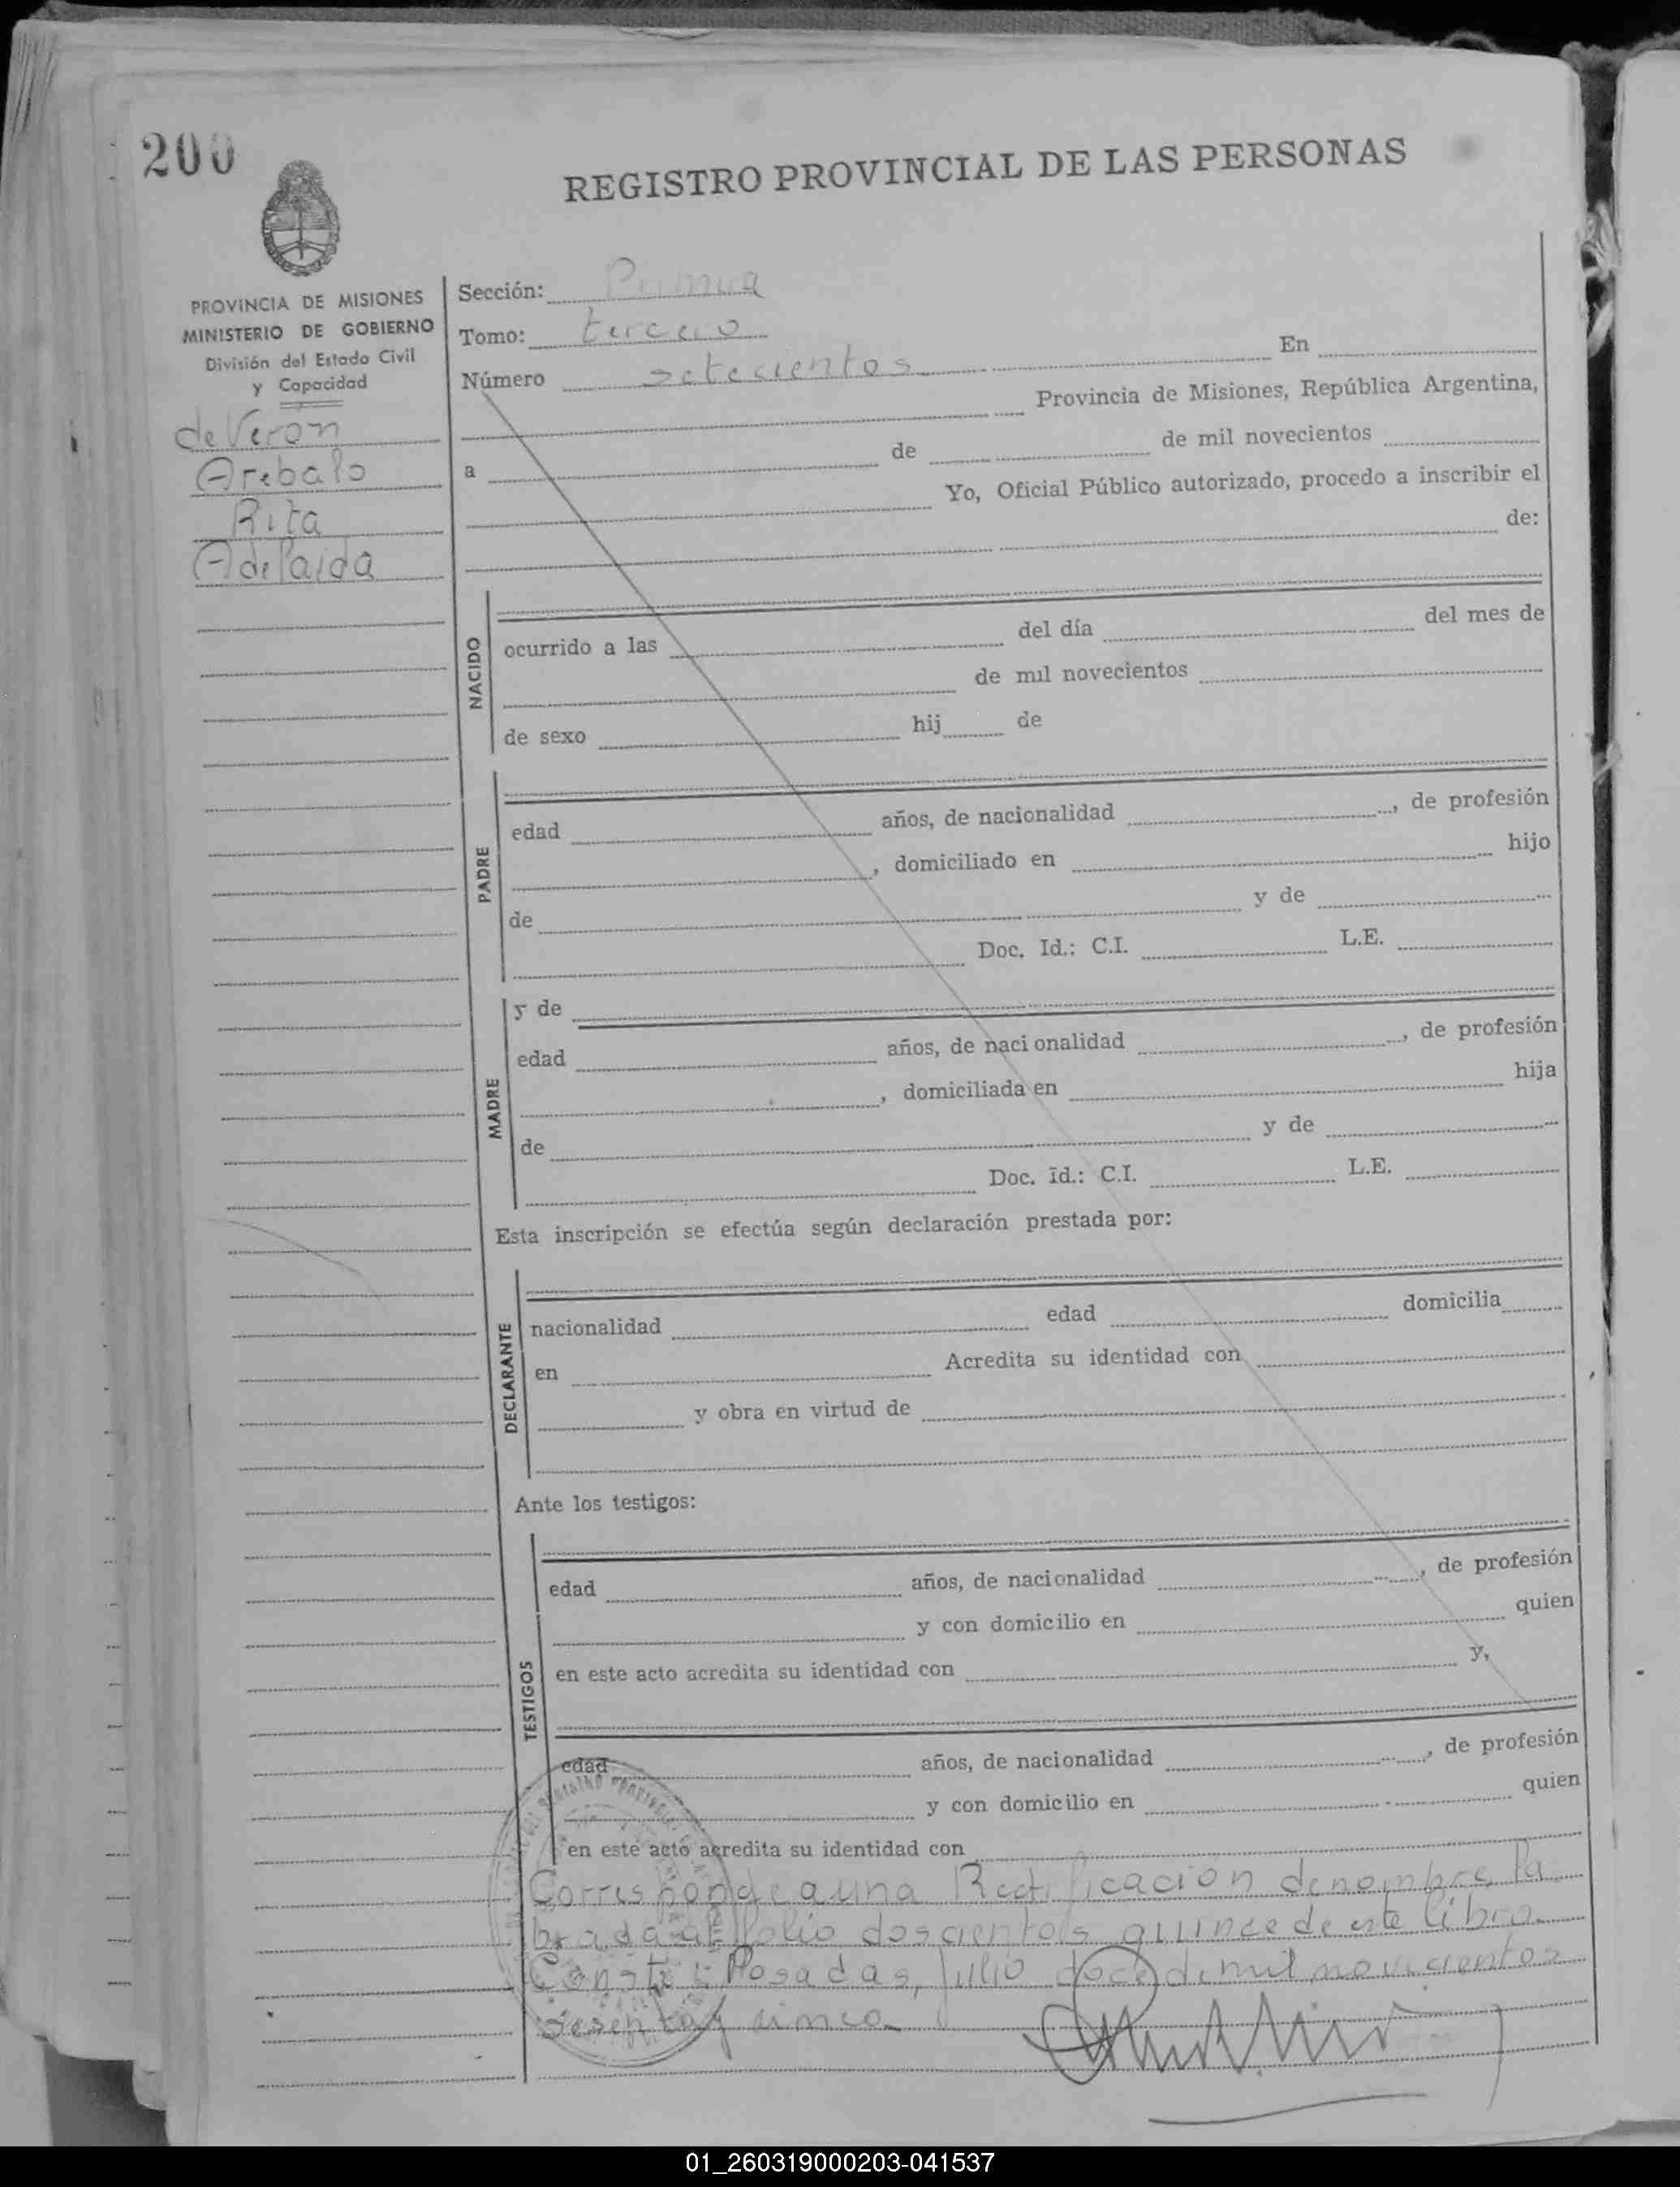 200
REGISTRO PROVINCIAL DE LAS PERSONAS
PROVINCIA DE MISIONES
MINISTERIO DE GOBIERNO
División del Estado Civil
y Capacidad
de Veron
Arebalo
Rita
Adelaida
Sección: Primera
Tomo: tercero
Número setecientos En
Provincia de Misiones, República Argentina,
a de de mil novecientos
Yo, Oficial Público autorizado, procedo a inscribir el
de:
NACIDO
ocurrido a las del día del mes de
de mil novecientos
de sexo hij de
PADRE
edad años, de nacionalidad , de profesión
, domiciliado en hijo
de y de
Doc. Id.: C.I. L.E.
MADRE
y de
edad años, de naci onalidad , de profesión
, domiciliada en hija
de y de
Doc. Id.: C.I. L.E.
Esta inscripción se efectúa según declaración prestada por:
DECLARANTE
nacionalidad edad domicilia
en Acredita su identidad con
y obra en virtud de
Ante los testigos:
TESTIGOS
edad años, de nacionalidad , de profesión
y con domicilio en quien
en este acto acredita su identidad con y,
edad años, de nacionalidad , de profesión
y con domicilio en quien
en este acto acredita su identidad con
Corresponde a una Rectificación de nombre, la
brada al folio doscientos quince de este libro.
Conste: Posadas, Julio doce de mil novecientos
sesenta y cinco.
01_260319000203-041537